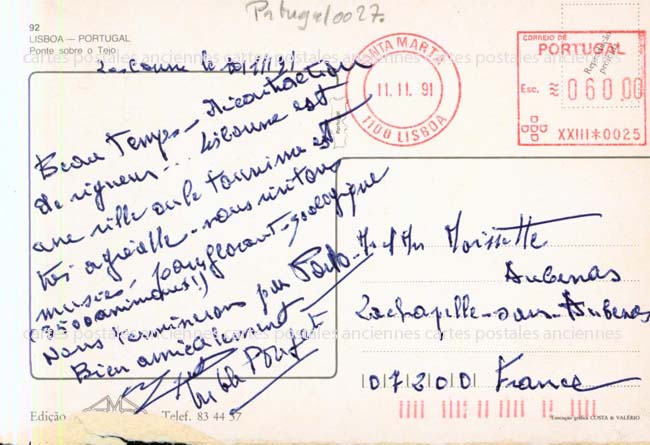 Portugal0027.
92
LISBOA — PORTUGAL
Ponte sobre o Tejo
Lisbonne le
Beau Temps - Décontraction
de rigueur... Lisbonne est
une ville où le tourisme est
très agréable - nous visitons
musées, parc floral - zoologique
(2500 animaux!!)
Nous terminerons par Porto -
Bien amicalement
SANTA MARTA
11. 11. 91
1100 LISBOA
CORREIO DE
PORTUGAL
Esc. 060,00
XXIII*0025
Reprodução
Portugal
M et Mme Moissette
Aubenas
Lachapelle-sous-Aubenas
07200 France
Edição
Telef. 83 44 57
Execução gráfica COSTA & VALÉRIO
cartes postales anciennes cartes postales anciennes cartes postales anciennes
cartes postales anciennes cartes postales anciennes cartes postales anciennes